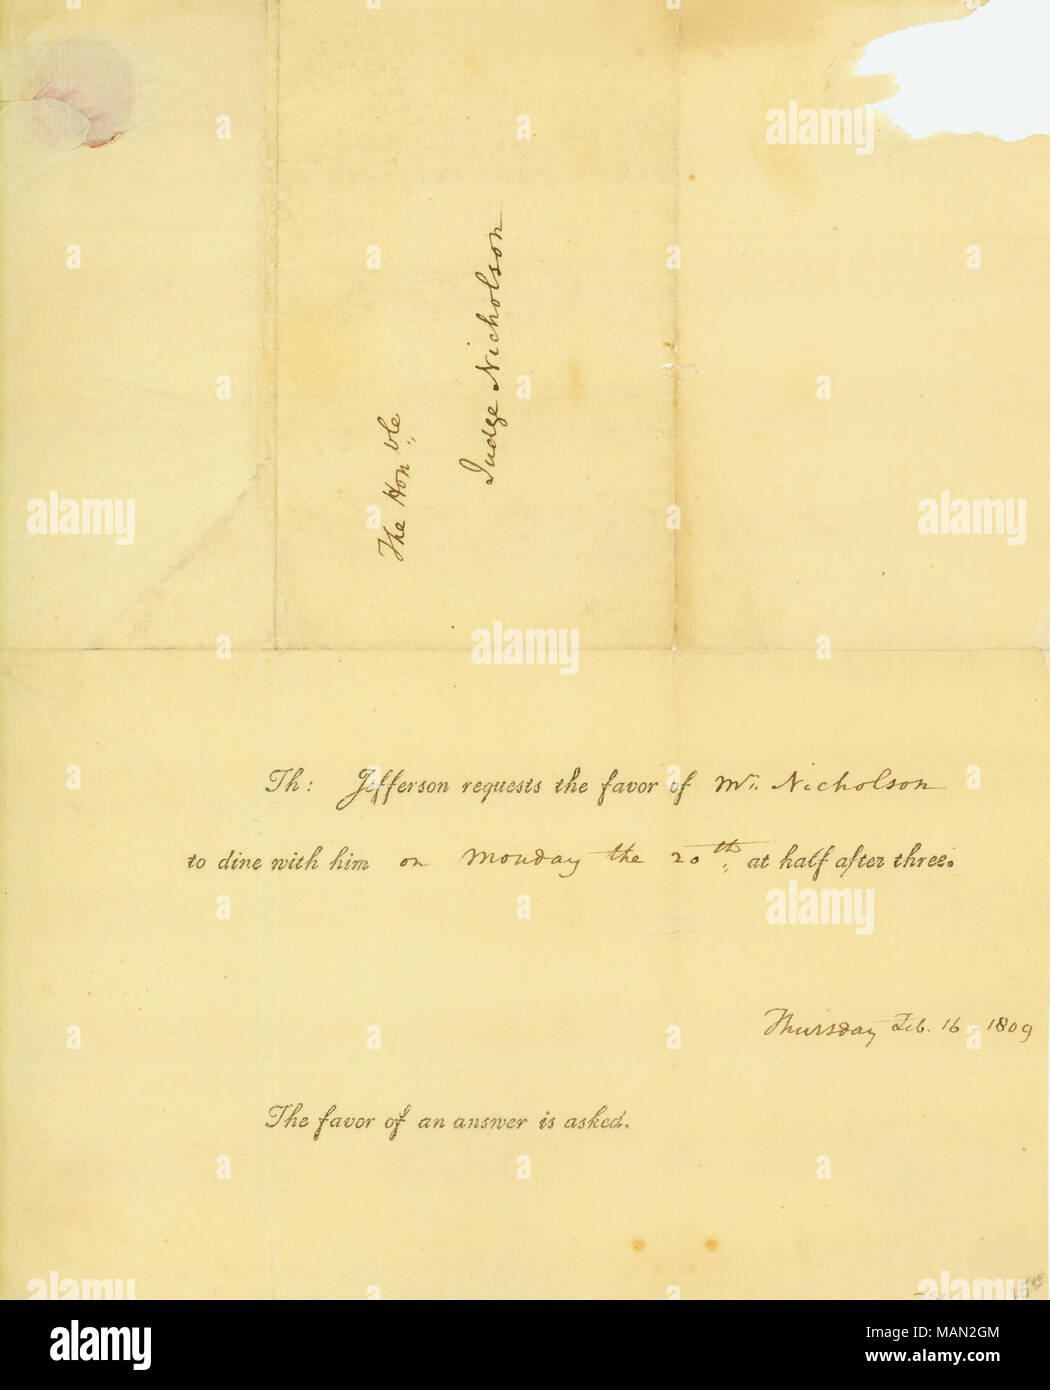 The Honble,
Judge Nicholson
Th: Jefferson requests the favor of Mr. Nicholson
to dine with him on Monday the 20th, at half after three.
Thursday Feb. 16 1809
The favor of an answer is asked.
alamy
Image ID: MAN2GM
www.alamy.com